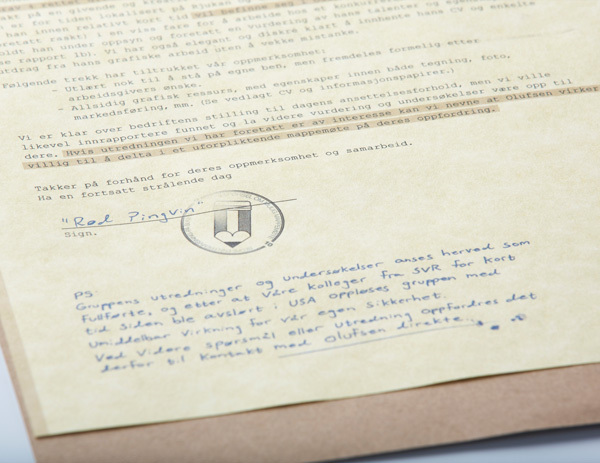 av å rettet
akt på en givende og krea
han for tiden lokalisert på kjukan og
han innen relativt kort tid vil befinne seg i
oretatt raskt i en viss fare for å arbeide hos en konkurr
oldt han under oppsyn og foretatt en vurdering av hans talenter og egensk
se rapport 1b). Vi har også elegant og diskre klart å innhente hans CV og enkelte
utdrag fra hans grafiske arbeid uten å vekke mistanke.
Følgende trekk har tiltrukket vår oppmerksomhet:
- Utlært nok til å stå på egne ben, men fremdeles formelig etter
arbeidsgivers ønske.
- Allsidig grafisk ressurs, med egenskaper innen både tegning, foto,
markedsføring, mm. (Se vedlagt CV og informasjonspapirer.)
Vi er klar over bedriftens stilling til dagens ansettelsesforhold, men vi ville
likevel innrapportere funnet og la videre vurdering og undersøkelser være opp til
dere. Hvis utredningen vi har foretatt er av interesse kan vi nevne at Olufsen virker
villig til å delta i et uforpliktende mappemøte på deres oppfordring.
Takker på forhånd for deres oppmerksomhet og samarbeid.
Ha en fortsatt strålende dag
"Rød Pingvin"
Sign.
PS
Gruppens utredninger og undersøkelser anses herved som
fullførte, og etter at våre kolleger fra SVR for kort
tid siden ble avslørt i USA oppløses gruppen med
umiddelbar virkning for vår egen sikkerhet.
Ved videre spørsmål eller utredning oppfordres det
derfor til kontakt med Olufsen direkte...